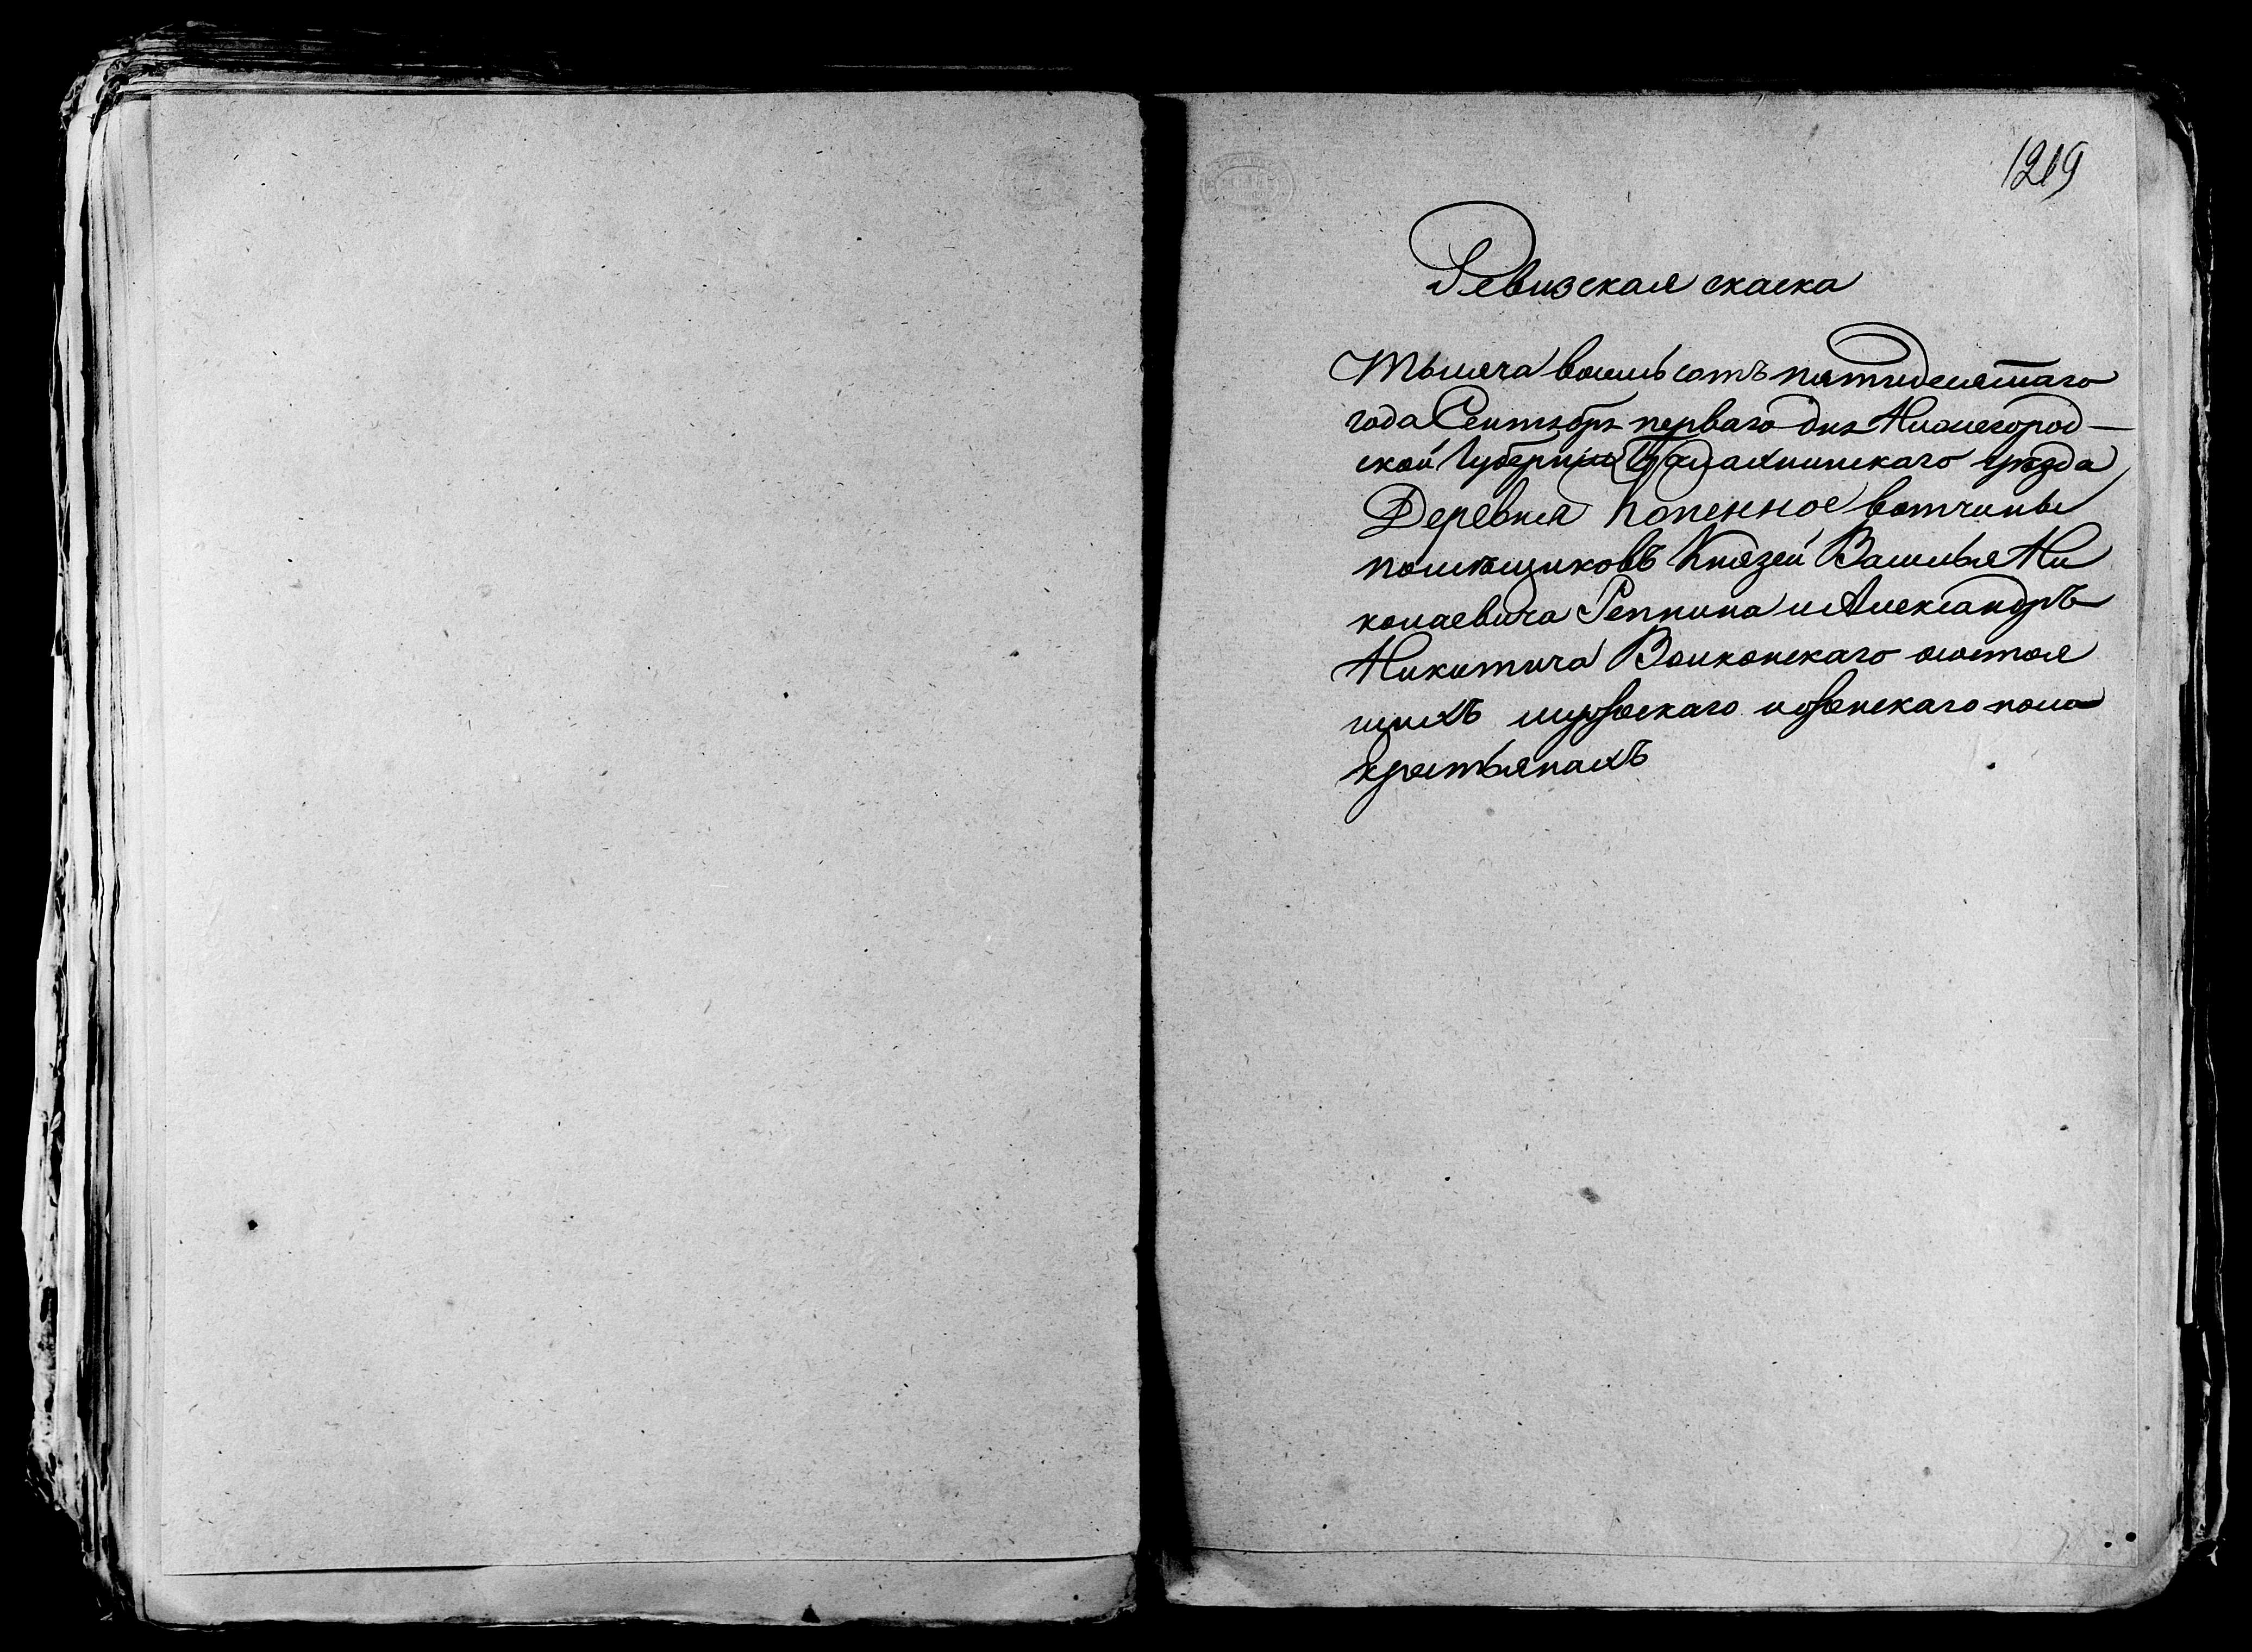 1219
Ревизская скаска
Тысяча восемь сотъ пятидесятаго
года Сентября перваго дня Нижегород-
ской Губернии Балахнинскаго уѣзда
Деревня Копенное вотчины
помѣщиковъ Князей Василья Ни
колаевича Репнина и Александръ
Никитича Волконскаго о состоя
щихъ мужескаго и женскаго пола
крестьянахъ